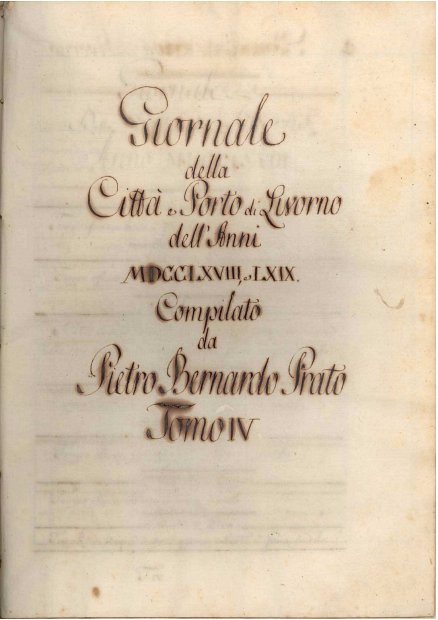 Giornale
della
Città e Porto di Livorno
dell'Anni
MDCCLXVIII, e LXIX.
Compilato
da
Pietro Bernardo Prato
Tomo IV